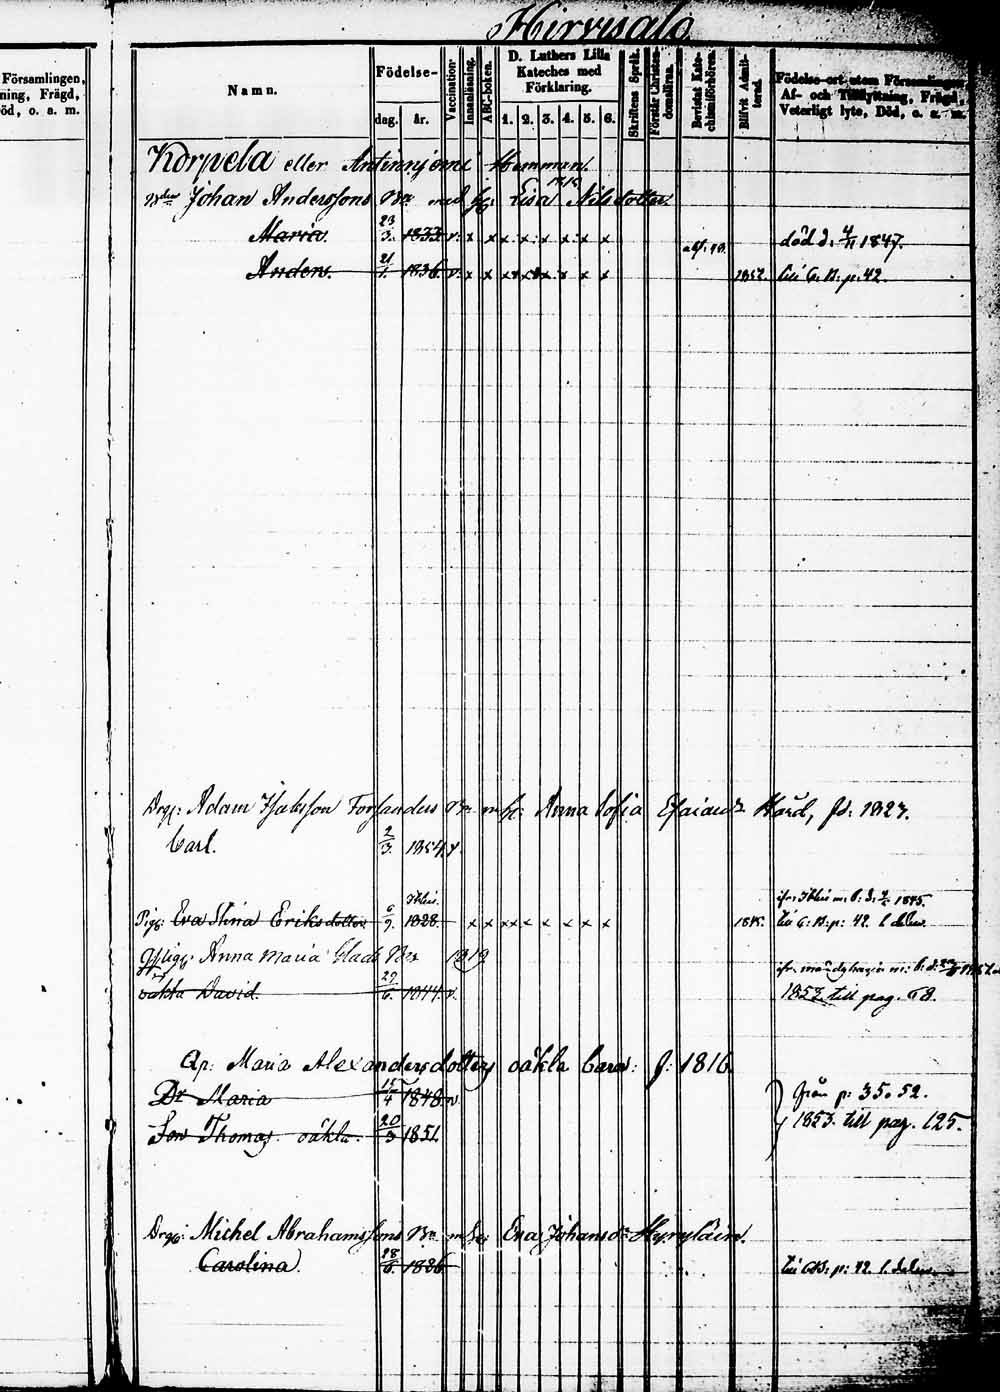 Hirvisalo
Församlingen,
ning, Frägd,
öd, o. a. m.
Namn.
Födelse-
dag. år.
Vaccination
Innanläsning.
ABC-boken.
D. Luthers Lilla
Kateches med
Förklaring.
1. 2. 3. 4. 5. 6.
Skriftens Språk.
Förstår Christendomslära.
Bevistat Katechismiförhören.
Blifvit Admitterad.
Födelse-ort utom Församlingen,
Af- och Tillflyttning, Frägd,
Veterligt lyte, Död, o. a. m.
Korpela eller Antinniemi Hemman.
Johan Anderssons Br med h: Lisa Nilsdotter 1812
Maria. 23/3. 1833. v. x x x x x x x x död d. 4/11 1847.
Anders. 21/1. 1836. v. x x x x x x x x 1852. till C. B: p: 42.
Drg: Adam Isaksson Forsanders Br m h: Anna Sofia Esaiasdr Hård, fd: 1827.
Carl. 2/3. 1854. v.
Pig: Eva Stina Eriksdotter 6/9. 1828. x x x x x x x x 1845. till C: B: p: 42. l. delen
Anna Maria Glad Br 1819
oäkta David. 27/6. 1844. v. 1853. till pag. 68.
Qp: Maria Alexandersdotters oäkta Barn: f: 1816.
Dr Maria 15/4 1848. v. från p: 35. 52.
Son Thomas oäkta. 20/3 1851 1853. till pag. 125.
Drg: Michel Abrahamssons Br m h: Eva Johansdr Hyryläin.
Carolina. 28/6. 1836 till CB: p: 42. l. delen